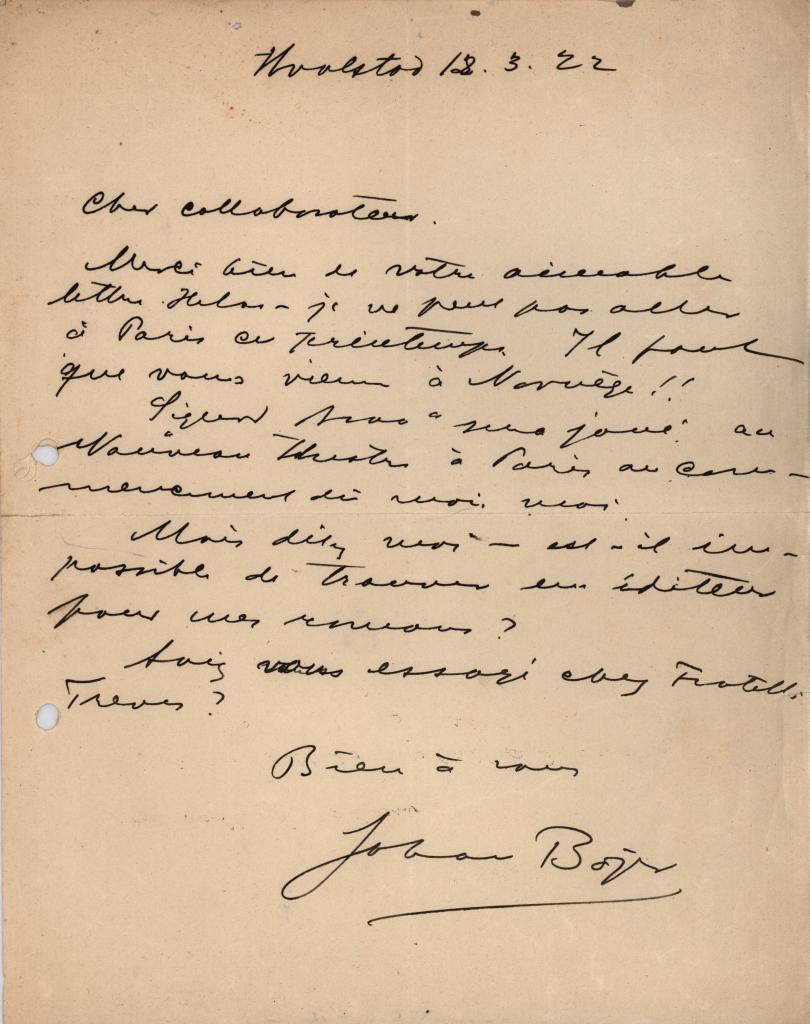 Hvalstad 18. 3. 22
Cher collaborateur.
Merci bien de votre aimable
lettre. Helas – je ne peut pas aller
à Paris ce printemps. Il faut
que vous vienn à Norvège!!
Sigurd Braa" sera joué au
Nouveau Theatre à Paris au com-
mencement du moi mai.
Mais ditez moi – est-il im-
possible de trouver un éditeur
pour mes romans?
Aviz vous essayé chez Fratelli
Treves?
Bien à vous
Johan Bojer